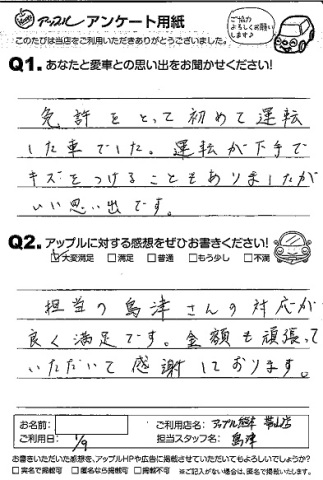 アップル アンケート用紙
ご協力
よろしくお願い
します♪
このたびは当店をご利用いただきありがとうございました。
Q1. あなたと愛車との思い出をお聞かせください!
免許をとって初めて運転
した車でした。運転が下手で
キズをつけることもありましたが
いい思い出です。
Q2. アップルに対する感想をぜひお書きください!
☑大変満足 □満足 □普通 □もう少し □不満
担当の島津さんの対応が
良く満足です。金額も頑張って
いただいて感謝しております。
お名前:
ご利用店名: アップル熊本 帯山店
ご利用日: 1/9
担当スタッフ名: 島津
お書きいただいた感想を、アップルHPや広告に掲載させていただいてもよろしいでしょうか?
□実名で掲載可 □匿名なら掲載可 □掲載不可 ※ご記入がない場合は、匿名で掲載いたします。